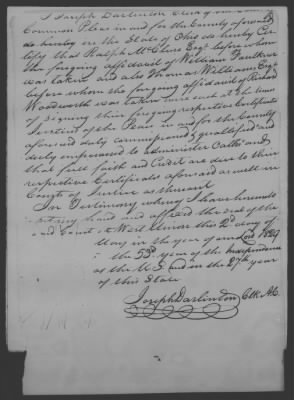 I Joseph Darlinton Clerk of the Court of
Common Pleas in and for the County aforesaid
do hereby in the State of Ohio do hereby Cer-
tify that Ralph McClure Esqr. before whom
the forgoing affidavit of William Faulkner
was taken and also Thomas Williams Esqr.
before whom the forgoing affidavit of Richard
Woodworth was taken were each at the time
of signing their forgoing respective Certificates
Justices of the Peace in and for the County
aforesaid duly commissioned & qualified and
duly empowered to administer Oaths and
that full faith and Credit are due to their
respective Certificates aforesaid as well in
Courts of Justice as thereout
In Testimony whereof I have hereunto
set my hand and affixed the seal of the
said Court at West Union this 2d day of
May in the year of our Lord 1829
in the 53d year of the Independence
of the U.S. and in the 27th year
of this State
Joseph Darlinton Clk A.C.